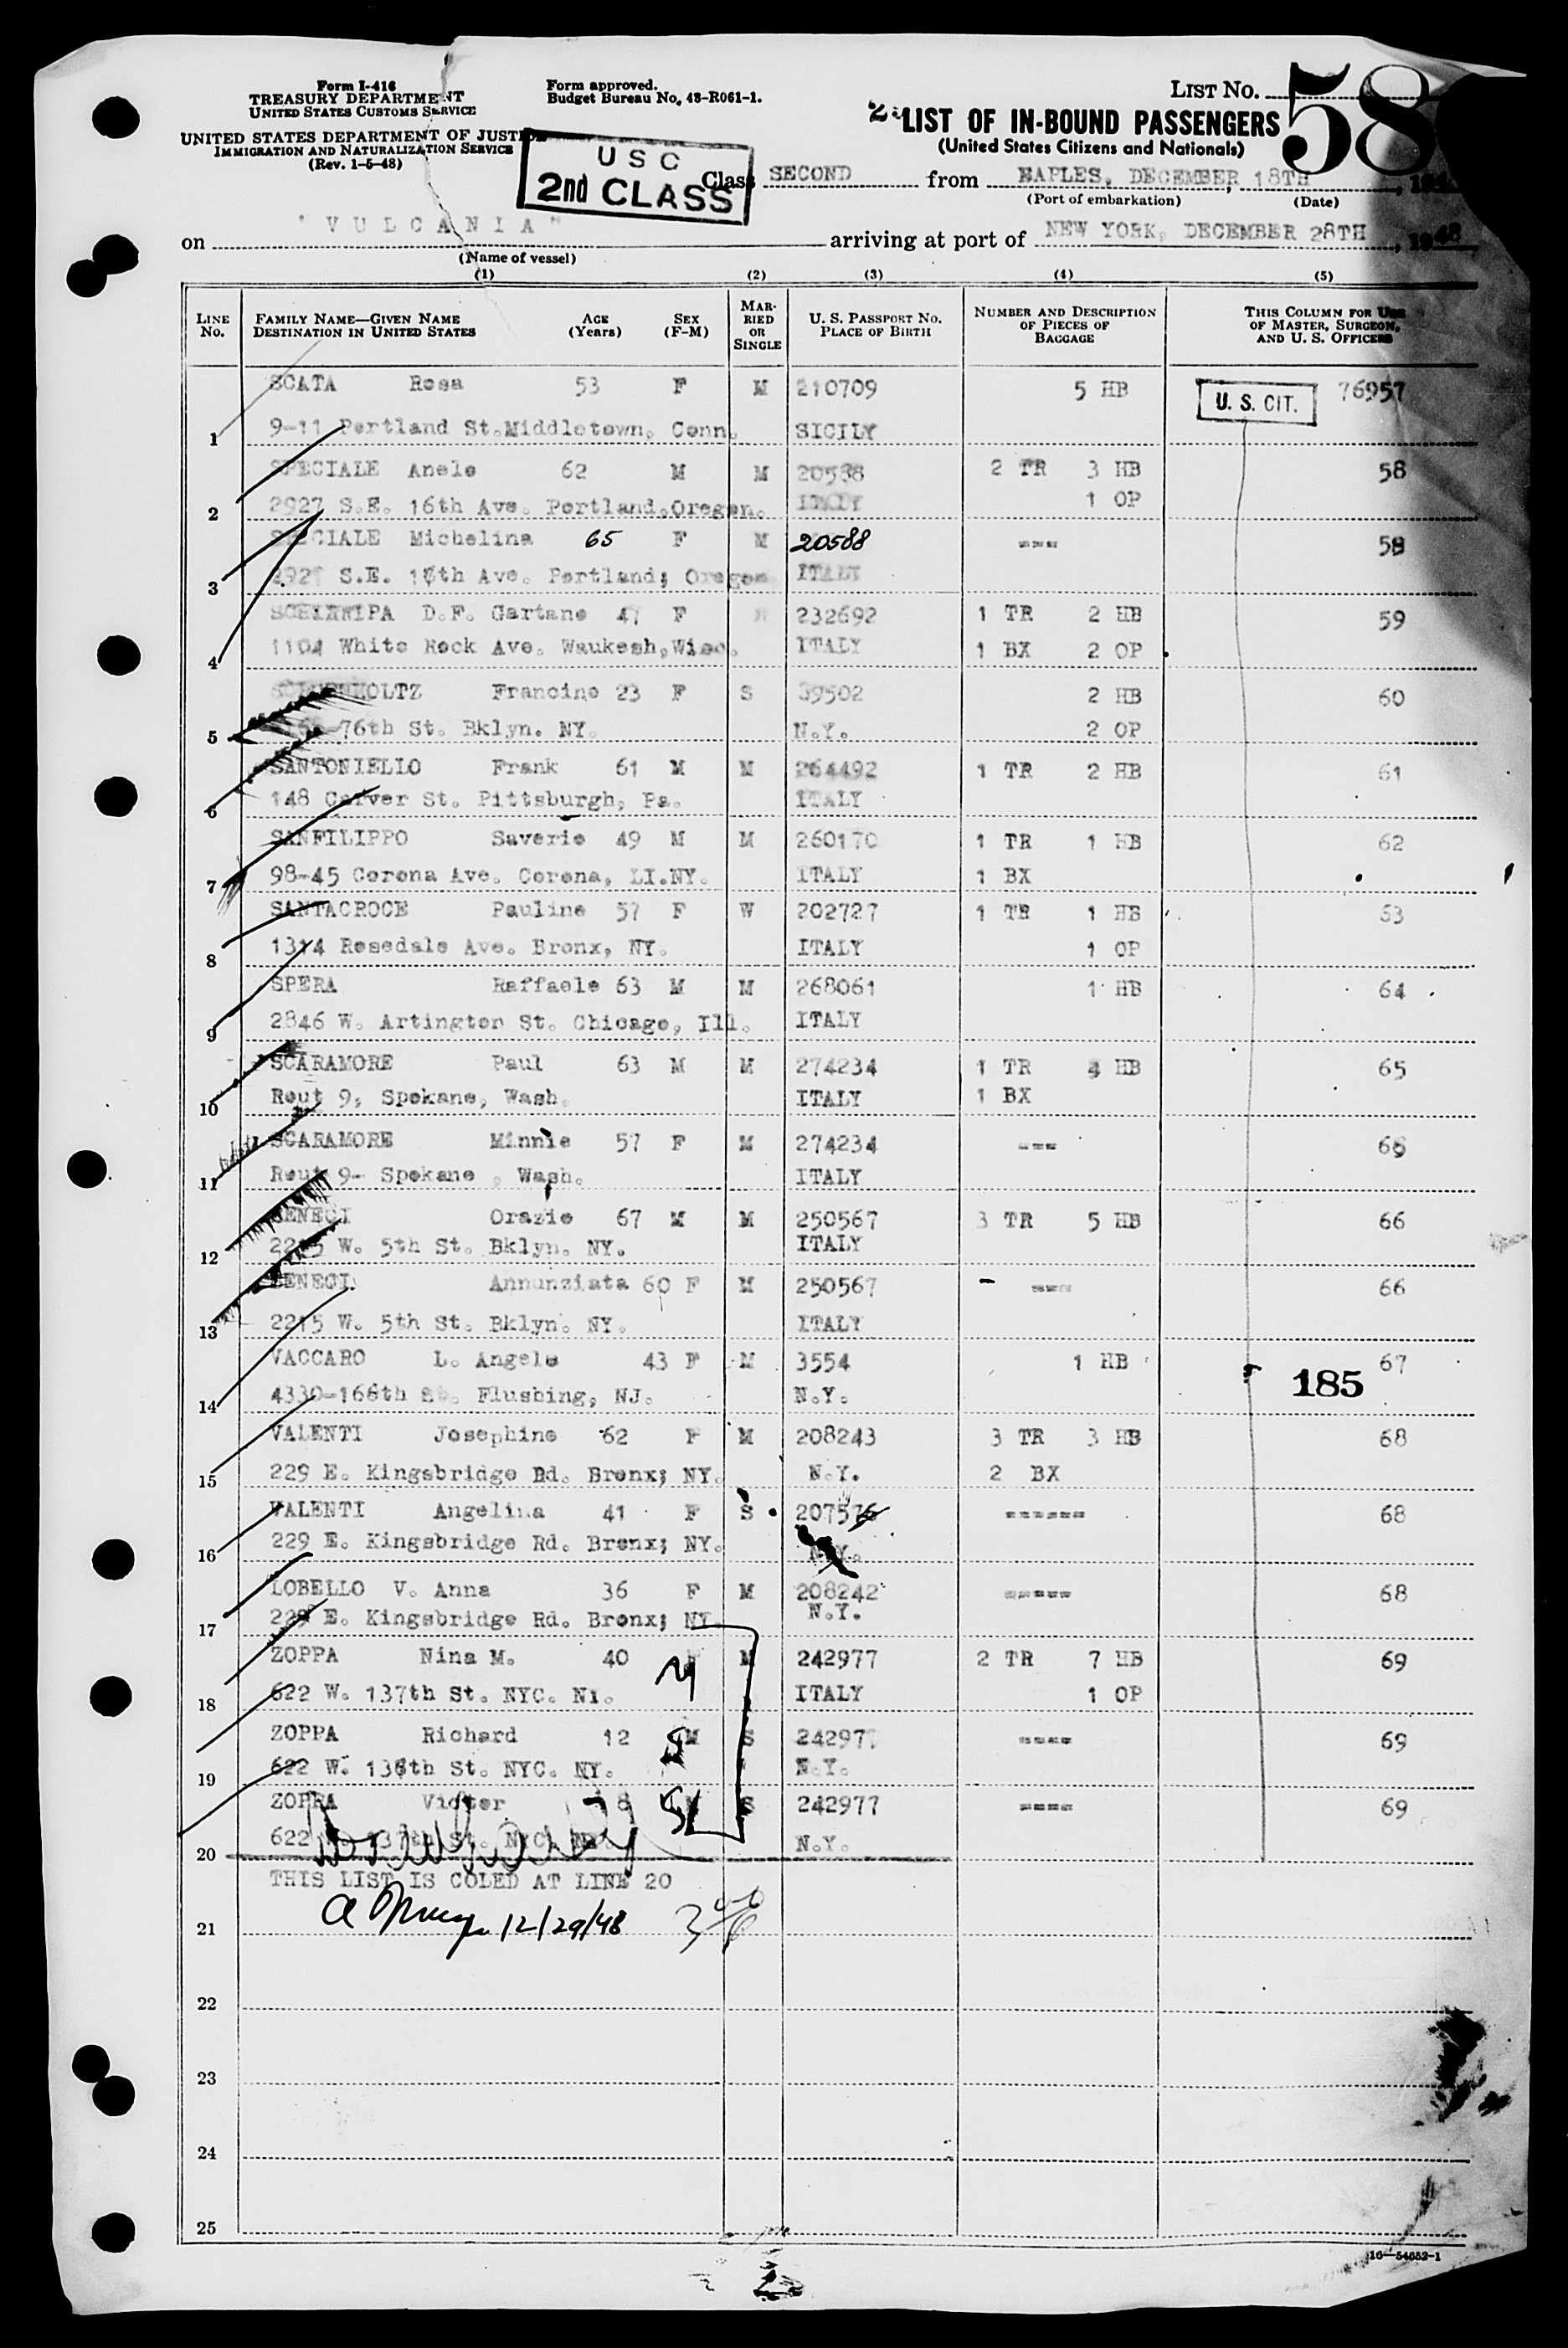 Form I-416
TREASURY DEPARTMENT
UNITED STATES CUSTOMS SERVICE
UNITED STATES DEPARTMENT OF JUSTICE
IMMIGRATION AND NATURALIZATION SERVICE
(Rev. 1-5-48)
Form approved.
Budget Bureau No. 43-R061-1.
LIST No. 58
LIST OF IN-BOUND PASSENGERS
(United States Citizens and Nationals)
USC
2nd CLASS
Class SECOND from NAPLES, DECEMBER 18TH, 19
(Port of embarkation) (Date)
on "VULCANIA" arriving at port of NEW YORK, DECEMBER 28TH, 1948
(Name of vessel)
(1) (2) (3) (4) (5)
LINE No. FAMILY NAME—GIVEN NAME DESTINATION IN UNITED STATES AGE (Years) SEX (F-M) MARRIED OR SINGLE U. S. PASSPORT No. PLACE OF BIRTH NUMBER AND DESCRIPTION OF PIECES OF BAGGAGE THIS COLUMN FOR USE OF MASTER, SURGEON, AND U. S. OFFICERS
SCATA Rosa 53 F M 210709 5 HB U. S. CIT. 76957
1 9-11 Portland St.Middletown, Conn. SICILY
SPECIALE Anele 62 M M 20588 2 TR 3 HB 58
2 2927 S.E. 16th Ave. Portland.Oregon. ITALY 1 OP
SPECIALE Michelina 65 F M 20588 ---- 58
3 2927 S.E. 16th Ave. Portland; Oregon ITALY
D.F. Gartano 47 F 232692 1 TR 2 HB 59
4 1104 White Rock Ave. Waukesh,Wisc. ITALY 1 BX 2 OP
Francine 23 F S 39502 2 HB 60
5 76th St. Bklyn. NY. N.Y. 2 OP
SANTONIELLO Frank 61 M M 264492 1 TR 2 HB 61
6 148 Carver St. Pittsburgh, Pa. ITALY
SANFILIPPO Saverio 49 M M 260170 1 TR 1 HB 62
7 98-45 Corona Ave. Corona, LI.NY. ITALY 1 BX
SANTACROCE Pauline 57 F W 202727 1 TR 1 HB 63
8 1314 Rosedale Ave. Bronx, NY. ITALY 1 OP
SPERA Raffaele 63 M M 268061 1 HB 64
9 2846 W. Artington St. Chicago, Ill. ITALY
SCARAMORE Paul 63 M M 274234 1 TR 4 HB 65
10 Rout 9, Spokane, Wash. ITALY 1 BX
SCARAMORE Minnie 57 F M 274234 ---- 65
11 Rout 9- Spokane , Wash. ITALY
SENECI Orazio 67 M M 250567 3 TR 5 HB 66
12 2215 W. 5th St. Bklyn. NY. ITALY
SENECI Annunziata 60 F M 250567 ---- 66
13 2215 W. 5th St. Bklyn. NY. ITALY
VACCARO L. Angela 43 F M 3554 1 HB 67
185
14 4330-166th St. Flushing, NJ. N.Y.
VALENTI Josephine 62 F M 208243 3 TR 3 HB 68
15 229 E. Kingsbridge Rd. Bronx; NY. N.Y. 2 BX
VALENTI Angelina 41 F S 207576 ------ 68
16 229 E. Kingsbridge Rd. Bronx; NY. N.Y.
LOBELLO V. Anna 36 F M 208242 ----- 68
17 229 E. Kingsbridge Rd. Bronx; NY. N.Y.
ZOPPA Nina M. 40 M M 242977 2 TR 7 HB 69
18 622 W. 137th St. NYC. NY. ITALY 1 OP
ZOPPA Richard 12 M S 242977 ---- 69
19 622 W. 136th St. NYC. NY. N.Y.
ZOPPA Victor 8 S 242977 ---- 69
20 622 W. 137th St. NYC. NY. N.Y.
THIS LIST IS COLED AT LINE 20
21 12/29/48
22
23
24
25
16—54652-1